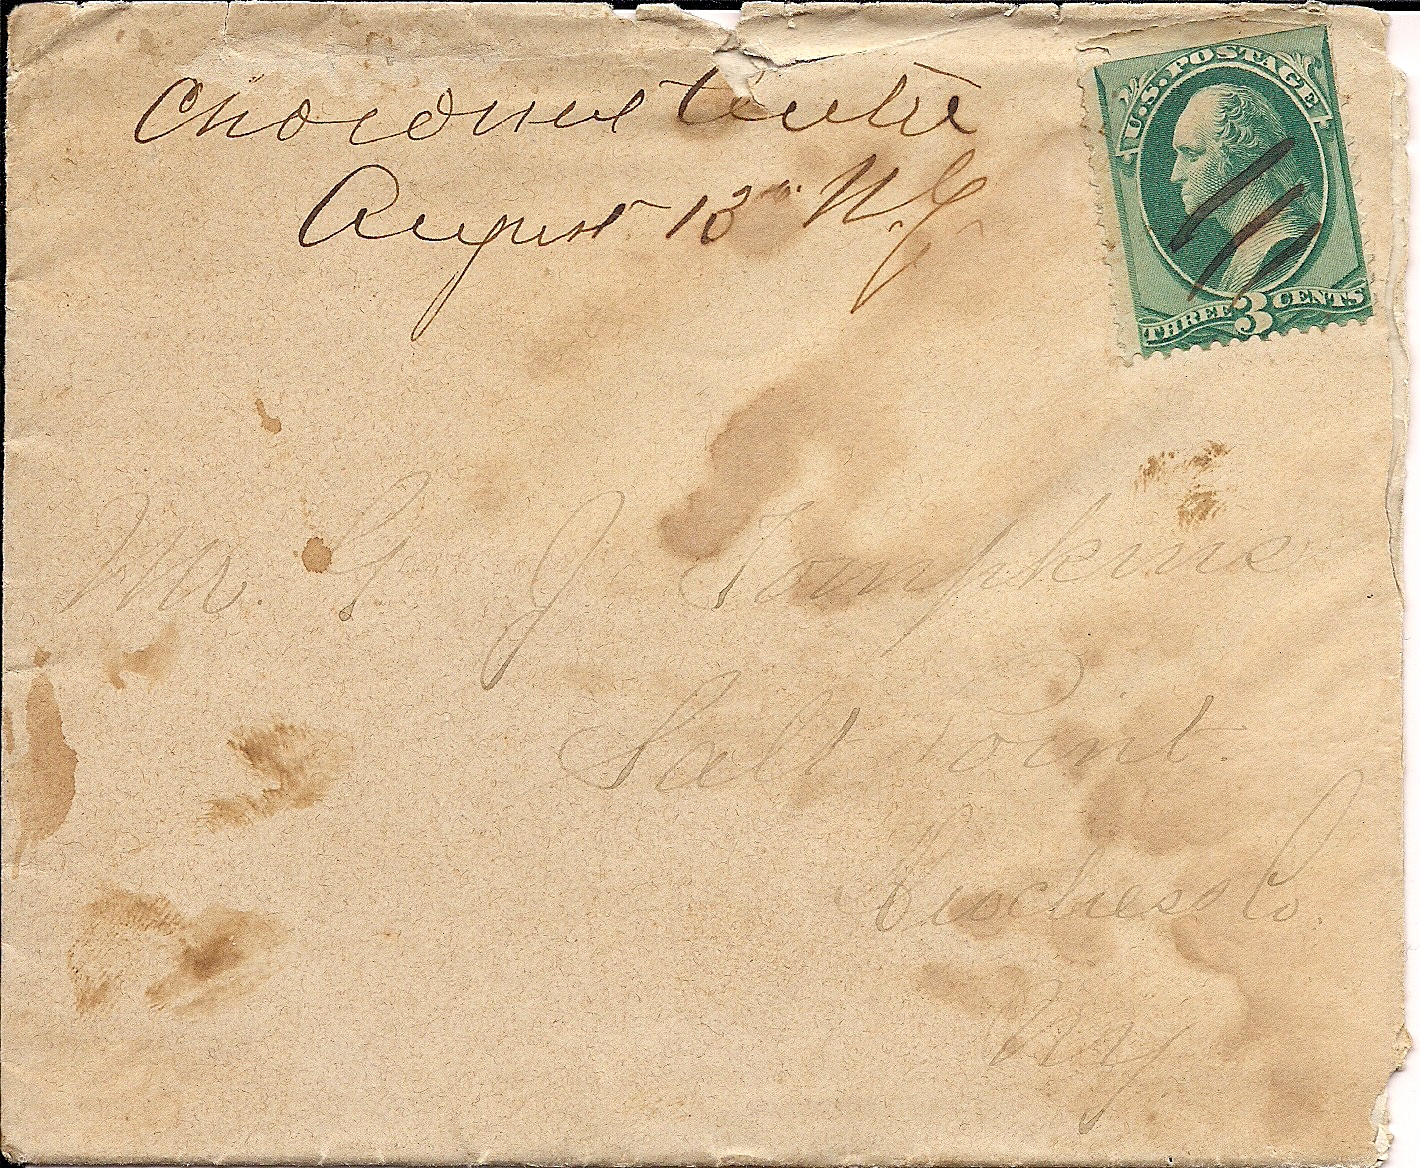 Centre
August 13th N.Y
U.S. POSTAGE
THREE 3 CENTS
Mr. G J Tompkins
Salt Point.
Duchess Co.
N Y